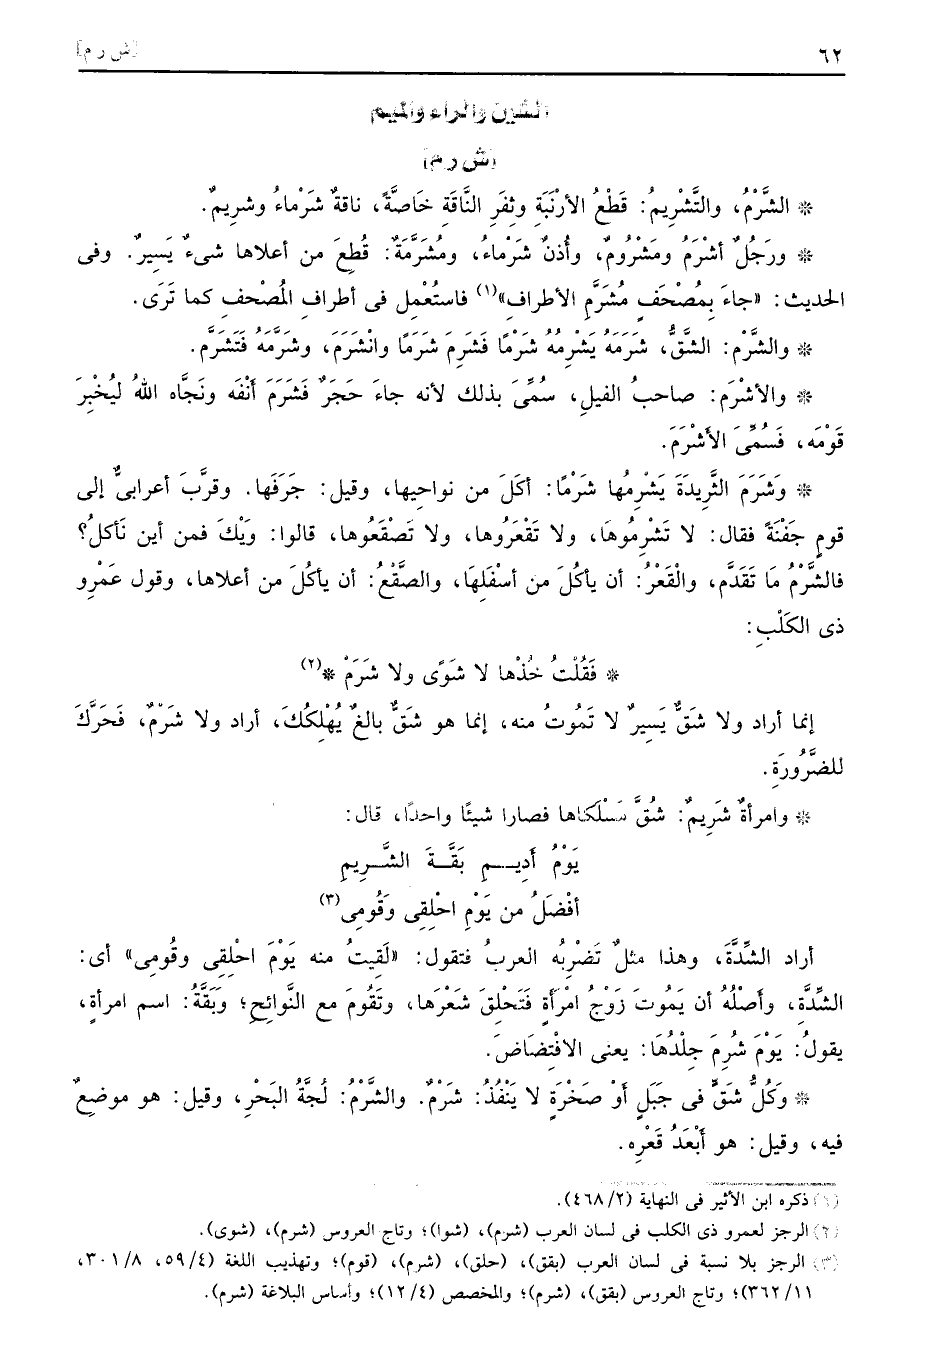 ٦٢ [ش ر م]
الشين والراء والميم
[ش ر م]
* الشَّرْمُ، والتَّشْرِيمُ: قَطْعُ الأرْنَبَةِ وثفَرِ النَّاقَةِ خَاصَّةً، ناقةٌ شَرْماءُ وشرِيمٌ.
* ورَجُلٌ أشْرَمُ ومَشْرُومٌ، وأُذنٌ شَرْماءُ، ومُشَرَّمَةٌ: قُطِعَ من أعلاها شىءٌ يَسِيرٌ. وفى
الحديث: «جاءَ بِمُصْحَفٍ مُشَرَّمِ الأطرافِ»(١) فاستُعْمِل فى أطرافِ المُصْحف كما تَرَى.
* والشَّرْم: الشقُّ، شَرَمَهُ يَشْرِمُهُ شَرْمًا فَشَرِمَ شَرَمًا وانْشَرَم، وشَرَّمَهُ فَتَشَرَّم.
* والأشْرَم: صاحبُ الفيلِ، سُمِّىَ بذلك لأنه جاءَ حَجَرٌ فَشَرَمَ أنْفَه ونَجَّاه اللهُ ليُخْبِرَ
قَوْمَه، فَسُمِّىَ الأَشْرَمَ.
* وَشَرَمَ الثَّرِيدَةَ يَشْرِمُها شَرْمًا: أكَلَ من نواحيها، وقيل: جَرَفَها. وقرَّبَ أعرابىٌّ إلى
قومٍ جَفْنَةً فقال: لا تَشْرِمُوهَا، ولا تَقْعَرُوها، ولا تَصْقَعُوها، قالوا: وَيْكَ فمن أين نَأكلُ؟
فالشَّرْمُ مَا تَقَدَّم، والْقَعْرُ: أن يأكُلَ من أسْفَلِهَا، والصَّقْعُ: أن يأكُلَ من أعلاها، وقول عَمْرٍو
ذى الكَلْبِ:
* فَقُلْتُ خُذْها لا شَوًى ولا شَرَمْ *(٢)
إنما أراد ولا شَقٌّ يَسِيرٌ لا تَمُوتُ منه، إنما هو شَقٌّ بالغٌ يُهْلِكُكَ، أراد ولا شَرْمٌ، فَحَرَّكَ
للضَّرُورَةِ.
* وامرأةٌ شَرِيمٌ: شُقَّ مَسْلَكَاها فصارا شيئًا واحدًا، قال:
يَوْمُ أَدِيـــمِ بَقَّـةَ الشَّـرِيمِ
أفْضَلُ من يَوْمِ احْلِقِى وَقُومِى(٣)
أراد الشِّدَّةَ، وهذا مثلٌ تَضْرِبُه العربُ فتقول: «لَقِيتُ منه يَوْمَ احْلِقِى وقُومِى» أى:
الشِّدَّةَ، وأصْلُهُ أن يَمُوتَ زَوْجُ امْرَأةٍ فَتَحْلِقَ شَعْرَها، وتَقُومَ مع النَّوائِحِ؛ وَبَقَّةُ: اسم امرأةٍ،
يقولُ: يَوْمَ شُرِمَ جِلْدُهَا: يعنى الافْتِضَاضَ.
* وَكُلُّ شَقٍّ فى جَبَلٍ أوْ صَخْرَةٍ لا يَنْفُذُ: شَرْمٌ. والشَّرْمُ: لُجَّةُ البَحْرِ، وقيل: هو موضعٌ
فيه، وقيل: هو أَبْعَدُ قَعْرِه.
(١) ذكره ابن الأثير فى النهاية (٢/ ٤٦٨).
(٢) الرجز لعمرو ذى الكلب فى لسان العرب (شرم)، (شوا)؛ وتاج العروس (شرم)، (شوى).
(٣) الرجز بلا نسبة فى لسان العرب (بقق)، (حلق)، (شرم)، (قوم)؛ وتهذيب اللغة (٤/ ٥٩، ٨/ ٣٠١،
١١/ ٣٦٢)؛ وتاج العروس (بقق)، (شرم)؛ والمخصص (٤/ ١٢)؛ وأساس البلاغة (شرم).